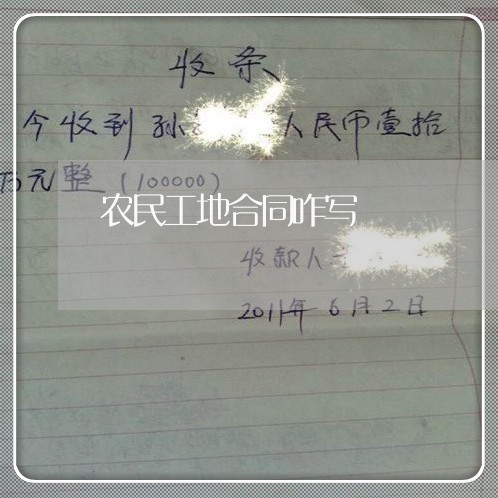 收条
今收到孙人民币壹拾
万元整（100000）
农民工地合同咋写
收款人
2011年6月2日